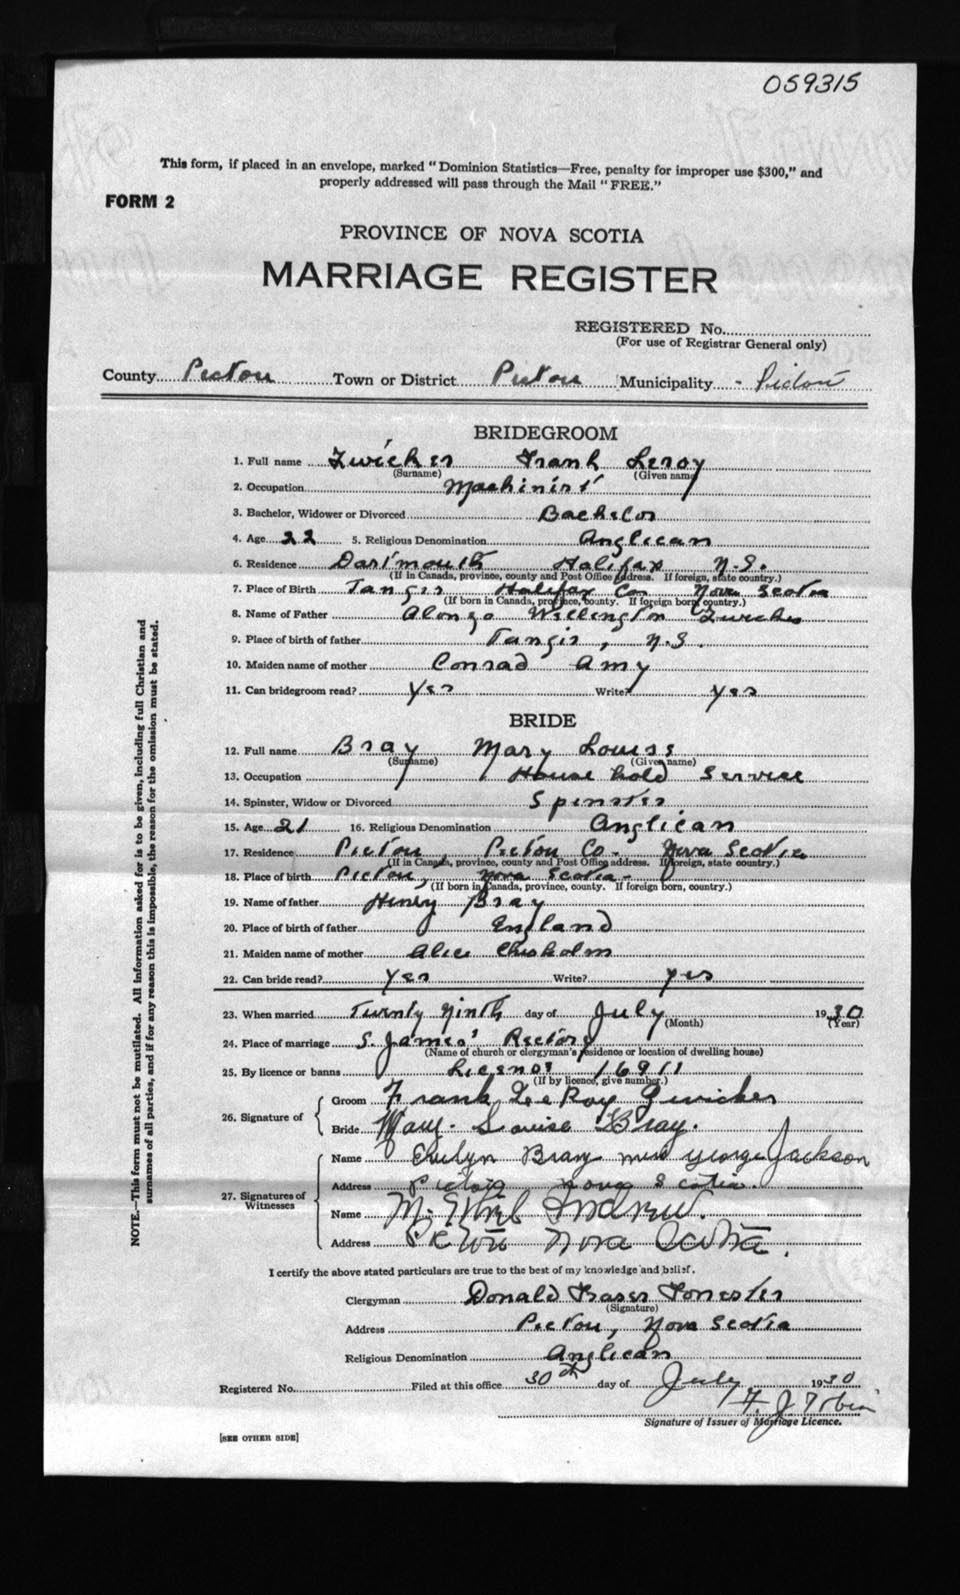 059315
This form, if placed in an envelope, marked "Dominion Statistics—Free, penalty for improper use $300," and
properly addressed will pass through the Mail "FREE."
FORM 2
PROVINCE OF NOVA SCOTIA
MARRIAGE REGISTER
REGISTERED No.
(For use of Registrar General only)
County Pictou Town or District Pictou Municipality - Pictou
BRIDEGROOM
1. Full name Zwicker Frank Leroy
(Surname) (Given name)
2. Occupation Machinist
3. Bachelor, Widower or Divorced Bachelor
4. Age 22 5. Religious Denomination Anglican
6. Residence Dartmouth Halifax N.S.
(If in Canada, province, county and Post Office address. If foreign, state country.)
7. Place of Birth Tangier Halifax Co Nova Scotia
(If born in Canada, province, county. If foreign born, country.)
8. Name of Father Alonzo Wellington Zwicker
9. Place of birth of father Tangier, N.S.
10. Maiden name of mother Conrad Amy
11. Can bridegroom read? Yes Write? Yes
BRIDE
12. Full name Bray Mary Louise
(Surname) (Given name)
13. Occupation House hold Service
14. Spinster, Widow or Divorced Spinster
15. Age 21 16. Religious Denomination Anglican
17. Residence Pictou Pictou Co. Nova Scotia
(If in Canada, province, county and Post Office address. If foreign, state country.)
18. Place of birth Pictou, Nova Scotia
(If born in Canada, province, county. If foreign born, country.)
19. Name of father Henry Bray
20. Place of birth of father England
21. Maiden name of mother Alice Chisholm
22. Can bride read? Yes Write? yes
23. When married Twenty Ninth day of July 1930
(Month) (Year)
24. Place of marriage S. James' Rectory
(Name of church or clergyman's residence or location of dwelling house)
25. By licence or banns License 16911
(If by licence, give number.)
26. Signature of
Groom Frank LeRoy Zwicker
Bride Mary Louise Bray.
27. Signatures of Witnesses
Name Evelyn Bray George Jackson
Address Pictou Nova Scotia.
Name M. Ethel
Address Pictou Nova Scotia.
I certify the above stated particulars are true to the best of my knowledge and belief.
Clergyman Donald Fraser Forrester
(Signature)
Address Pictou, Nova Scotia
Religious Denomination Anglican
Registered No. Filed at this office 30th day of July 1930
F. J. Tobin
Signature of Issuer of Marriage Licence.
[SEE OTHER SIDE]
NOTE.—This form must not be mutilated. All information asked for is to be given, including full Christian and
surnames of all parties, and if for any reason this is impossible, the reason for the omission must be stated.